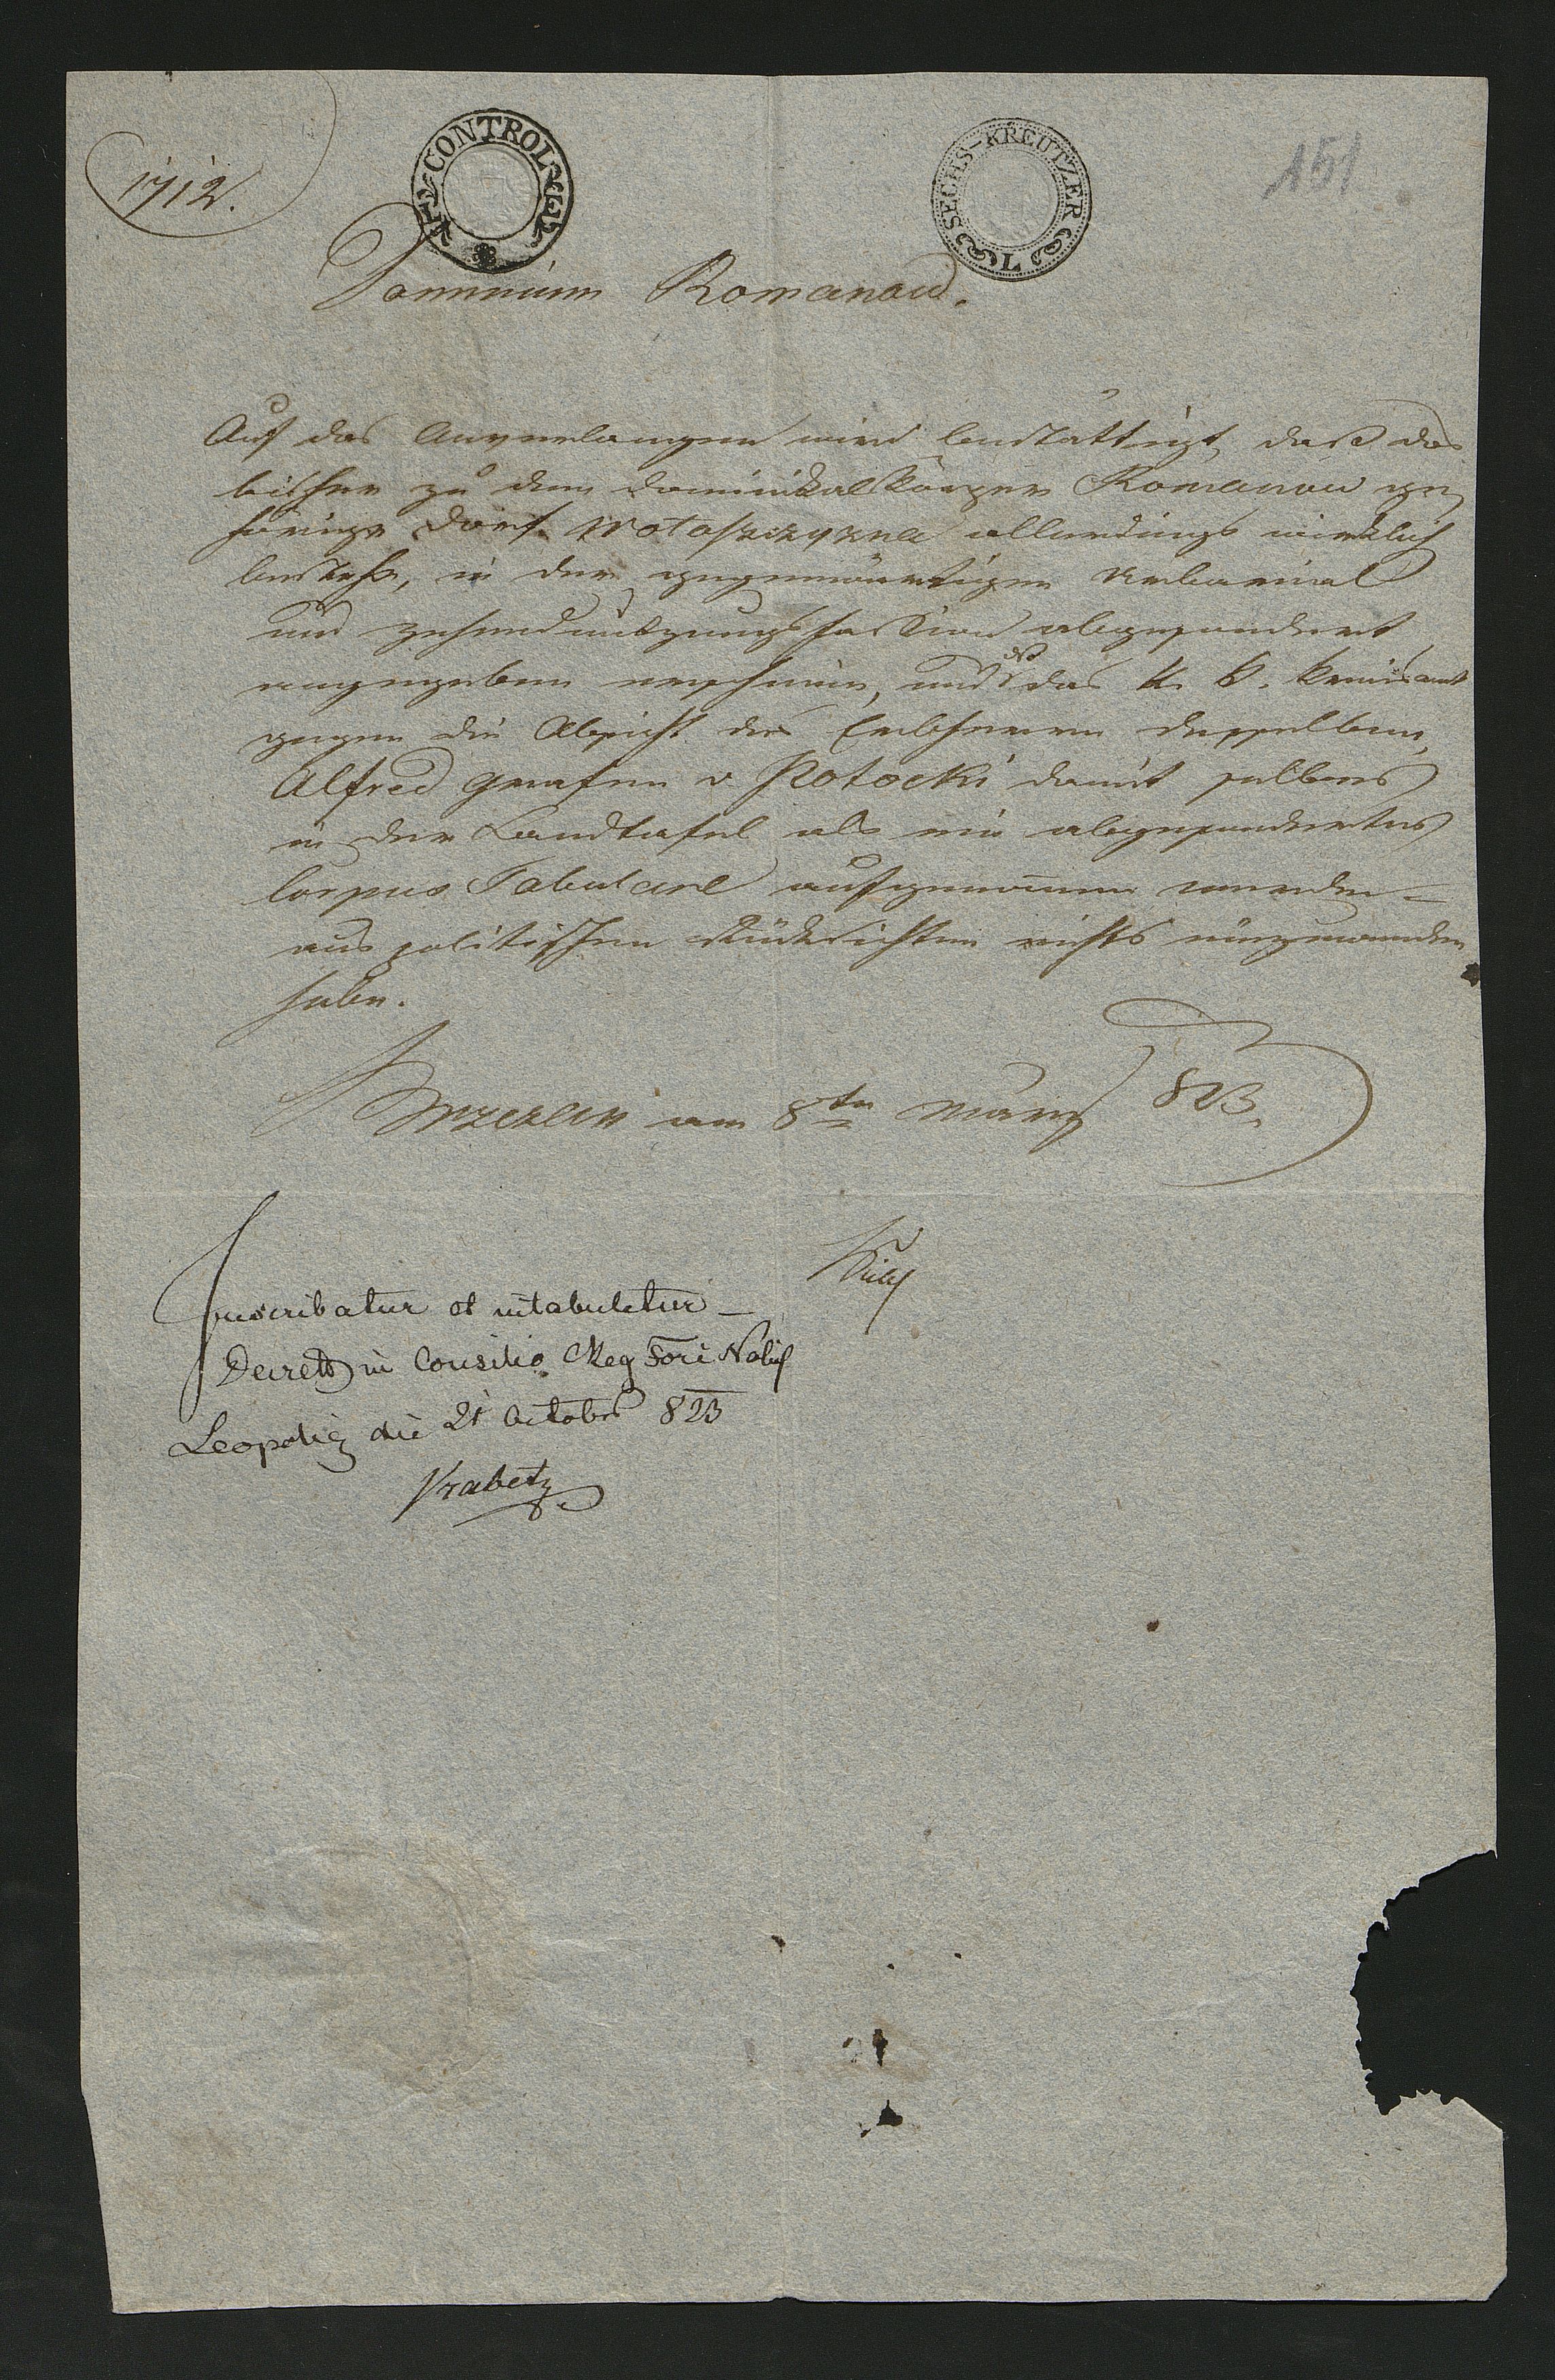 1712.
CONTROL
SECHS-KREUTZER
L
151
Dominium Romanow.
Auf das Anverlangen wird bestättigt, daß das
bisher zu dem Dominikalkörper Romanow ge-
hörige Dorf Wołoszczyzna allerdings wirklich
bestehe, in der gegenwärtigen Urbarial
und Zehendnutzungsfassion abgesondert
angegeben erscheine, und das K. K. Kreisamt
gegen die Absicht des Erbherrn desselben,
Alfred Grafen v. Potocki damit selbes
in der Landtafel als ein abgesondertes
Corpus Tabulare aufgenommen werden
aus politischen Rücksichten nichts einzuwenden
habe.
am 8ten März 823.
Inscribatur et intabuletur
Decret in Consilio Reg Fori Nobil
Leopoli die 21 Octobr 823
Vrabetz